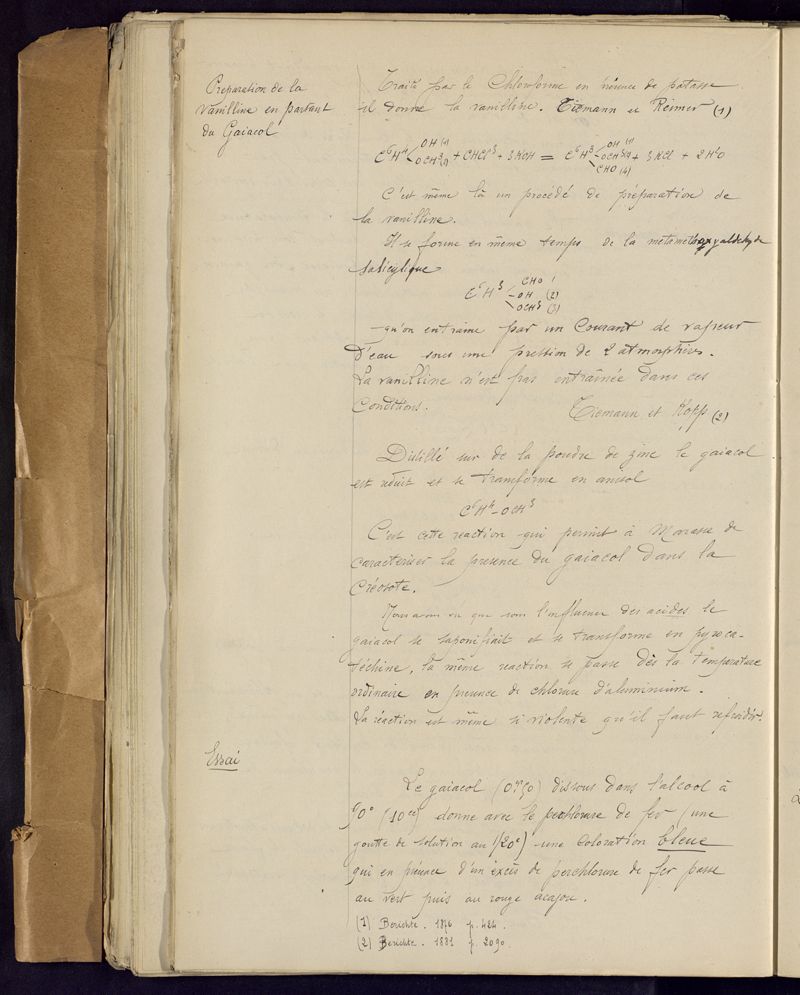 Preparation de la
Vanilline en partant
du Gaiacol
Traité par le Chloroforme en présence de potasse
il donne la vanilline. Tiemann et Reimer (1)
C⁶H⁴ OH (1) OCH³ (2) + CHCl³ + 3KOH = C⁶H³ OH (1) OCH³ (2) CHO (4) + 3KCl + 2H²O
C'est même là un procédé de préparation de
la vanilline.
Il se forme en même temps de la
Salicylique
C⁶H³ CHO 1 OH (2) OCH³ (3)
qu'on entraine par un Courant de vapeur
d'eau sous une pression de 2 atmosphères.
La vanilline n'est pas entraînée dans ces
Conditions.
Tiemann et Kopp (2)
Distillé sur de la poudre de zinc le gaiacol
est réduit et se transforme en anisol
C⁶H⁴-OCH³
C'est cette reaction qui permit à Morasse de
caractériser la présence du gaiacol dans la
Créosote.
Nous avons vu que sous l'influence des acides le
gaiacol se saponifiait et se transforme en pyroca-
téchine, la même reaction se passe dès la température
ordinaire en présence de chlorure d'aluminium.
La réaction est même si violente qu'il faut refroidir.
Essai
Le gaiacol (0gr50) dissous dans l'alcool à
90° (10cc) donne avec le perchlorure de fer (une
goutte de solution au 1/20e) une Coloration bleue
qui en présence d'un excès de perchlorure de fer passe
au vert puis au rouge acajou.
(1) Berichte. 1876 p. 424.
(2) Berichte. 1881 p. 2090.